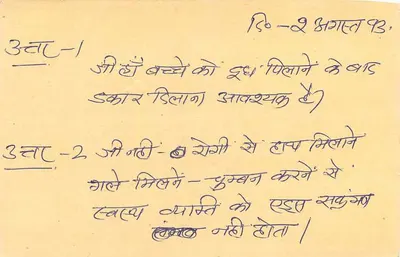 दि० - २ अगस्त ९३.
उत्तर - 1
जी हाँ बच्चे को दूध पिलाने के बाद
डकार दिलाना आवश्यक है।
उत्तर - 2 जी नहीं - रोगी से हाथ मिलाने
गले मिलनें - चुम्बन करनें से
स्वस्थ व्यक्ति को एड्स संक्रमण
नही होता।